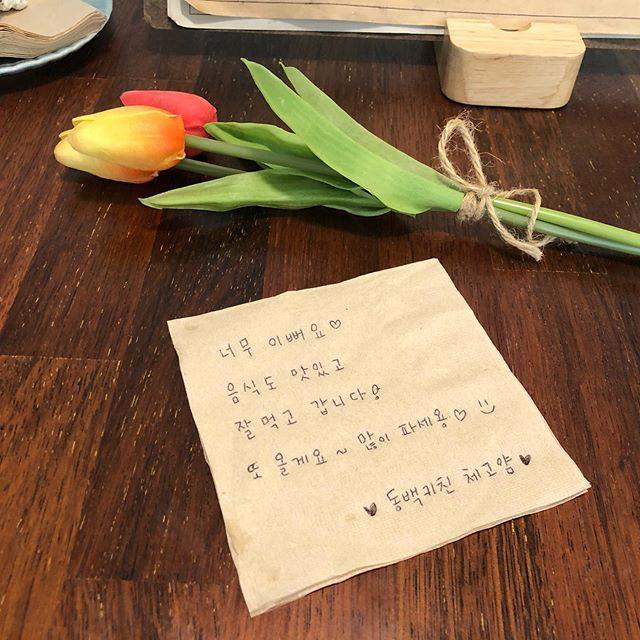 너무 이뻐요♡
음식도 맛있고
잘 먹고 갑니다!
또 올게요~ 많이 파세용♡ :)
♥ 동백키친 체고얌 ♥